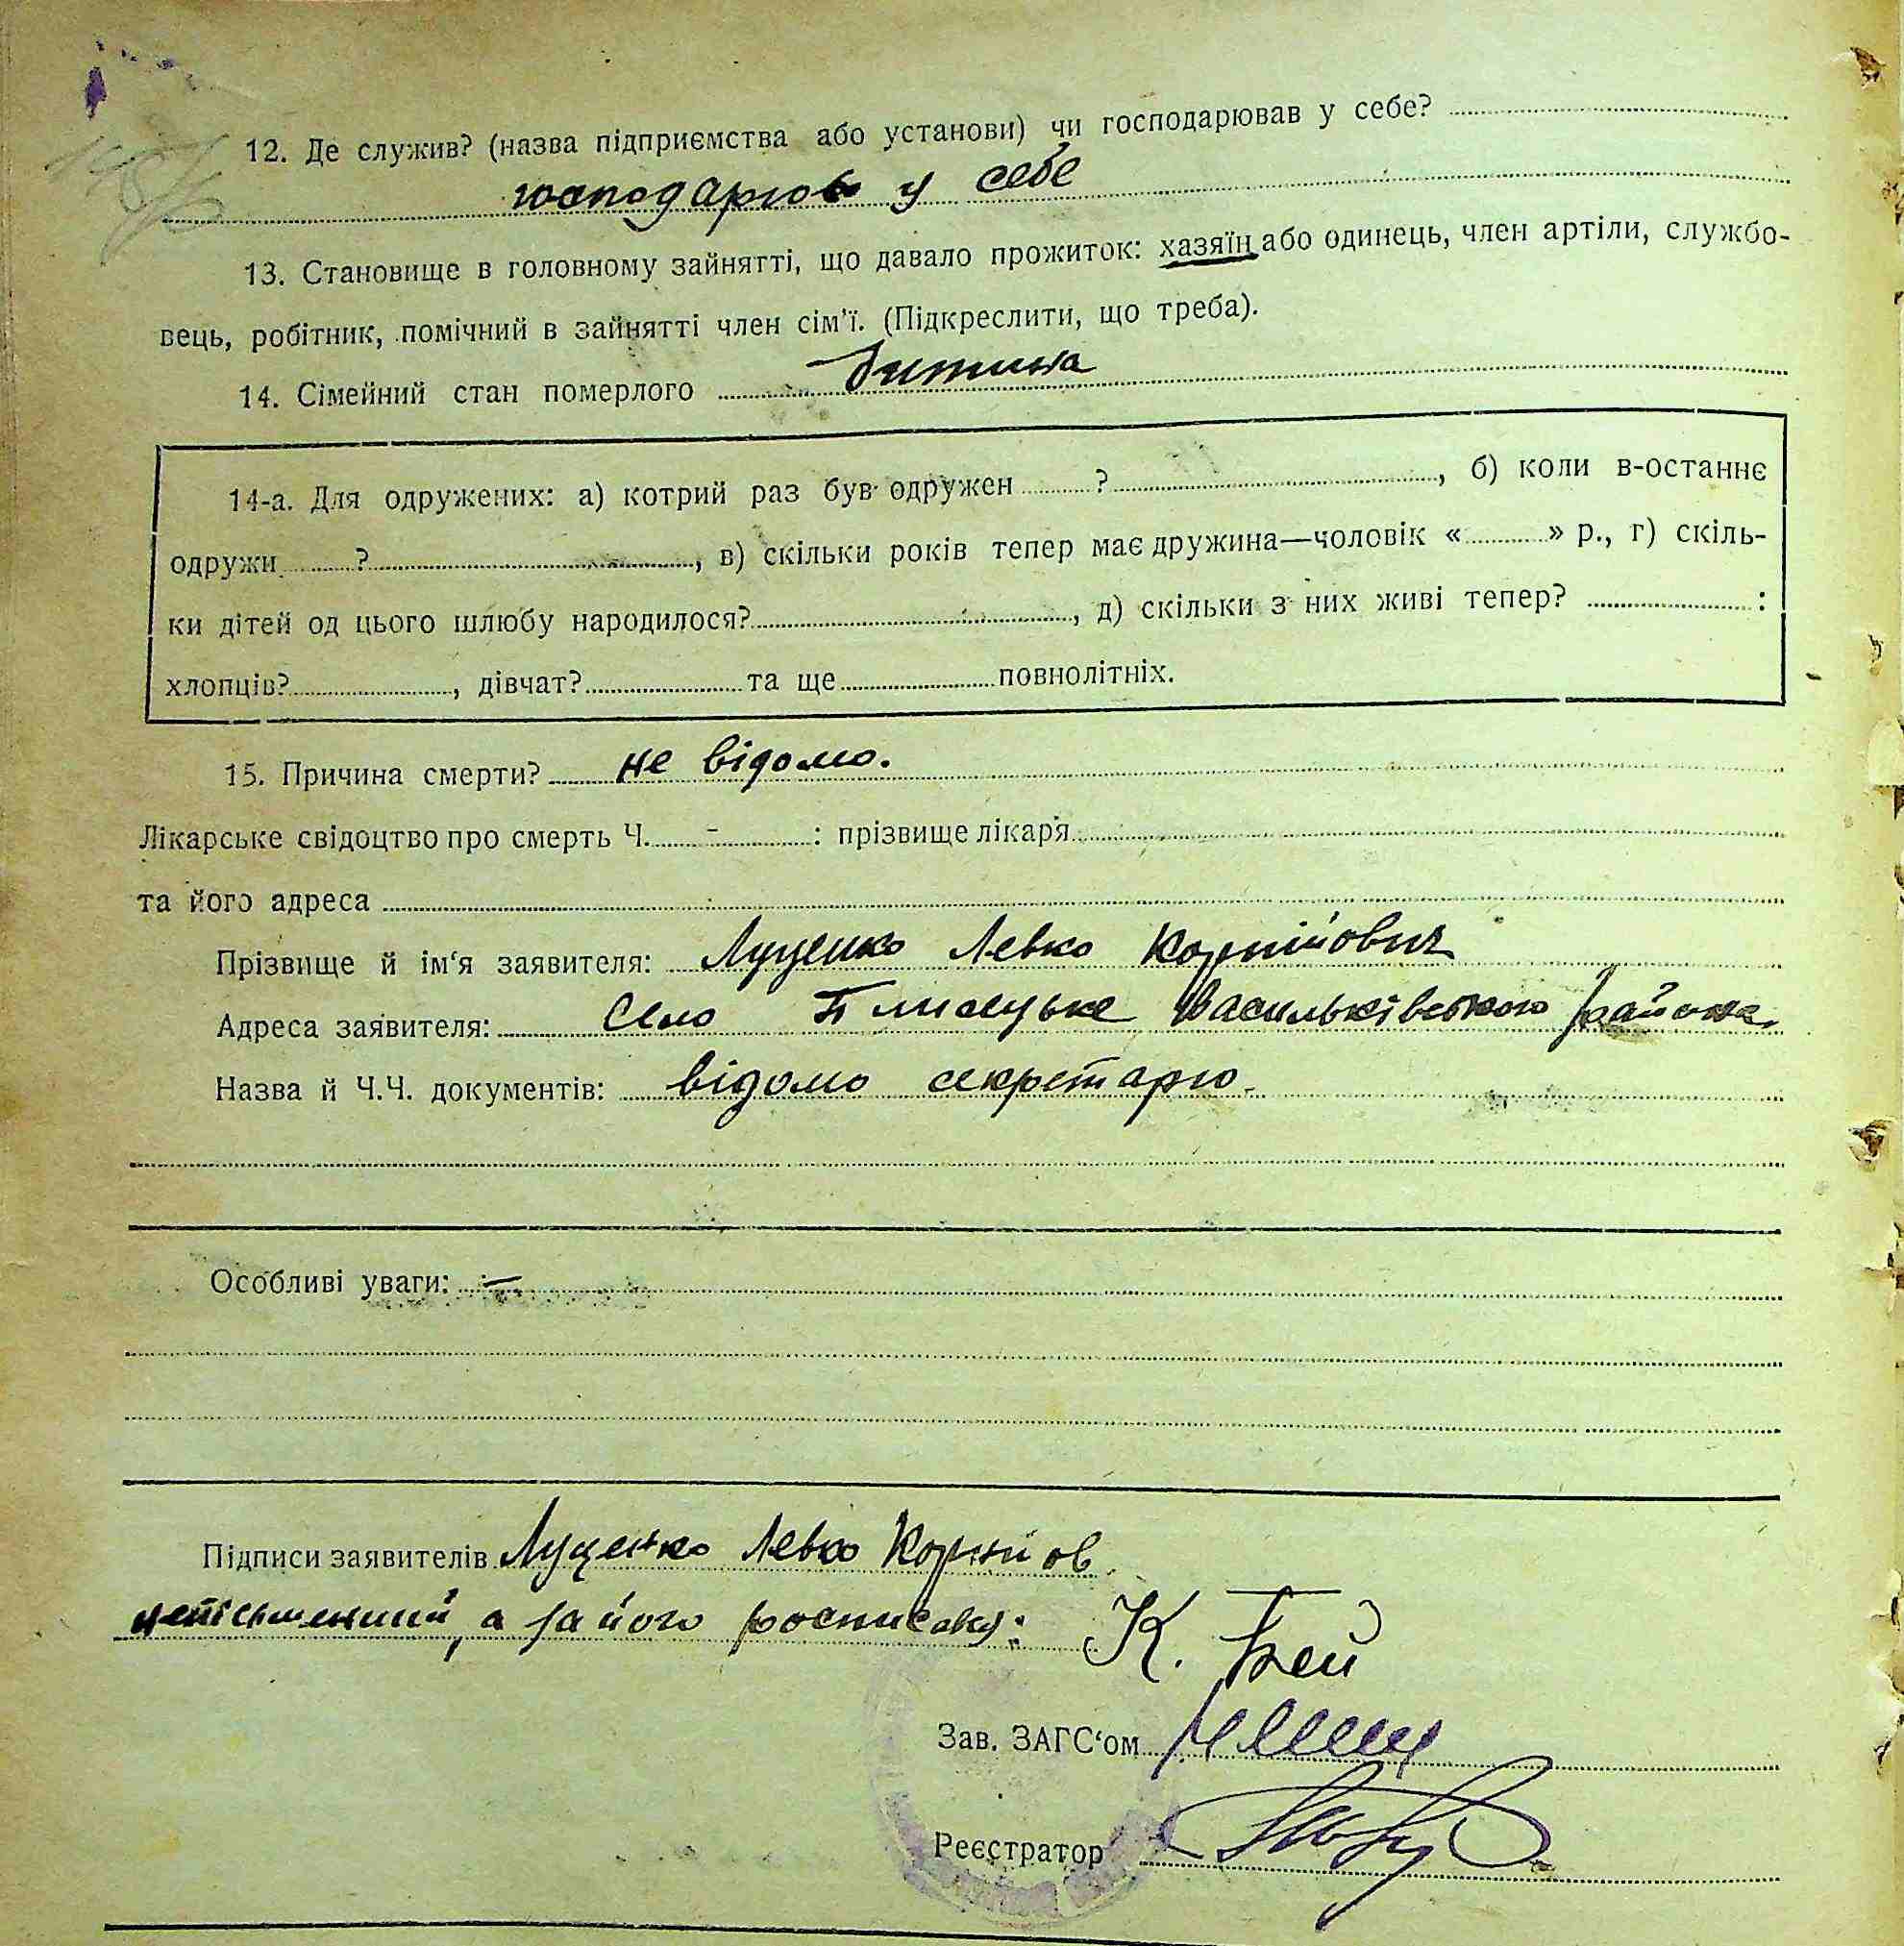 12. Де служив? (назва підприємства або установи) чи господарював у себе?
господарюв у себе
13. Становище в головному зайнятті, що давало прожиток: хазяїн або одинець, член артіли, службо-
вець, робітник, помічний в зайнятті член сім'ї. (Підкреслити, що треба).
14. Сімейний стан померлого дитина
14-а. Для одружених: а) котрий раз був одружен ? , б) коли в-останнє
одружи ? , в) скільки років тепер має дружина—чоловік « » р., г) скіль-
ки дітей од цього шлюбу народилося? , д) скільки з них живі тепер? :
хлопців? , дівчат? та ще повнолітніх.
15. Причина смерти? не відомо.
Лікарське свідоцтво про смерть Ч. - : прізвище лікаря
та його адреса
Прізвище й ім'я заявителя: Луценко Левко Корнійович
Адреса заявителя: Село Васильківського района.
Назва й Ч.Ч. документів: відомо секретарю.
Особливі уваги: —
Підписи заявителів Луценко Левко Корнійов
неписьменний, а за його росписався: К. Бей
Зав. ЗАГС'ом
Реєстратор